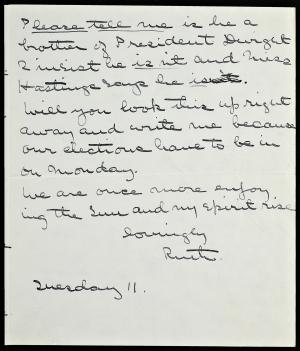 Please tell me is he a
brother of President Dwight
I insist he is nt and Miss
Hastings says he is
Will you look this up right
away and write me because
our elections have to be in
on Monday.
We are once more enjoy
ing the Sun and my spirit rise
Lovingly
Ruth.
Tuesday 11.